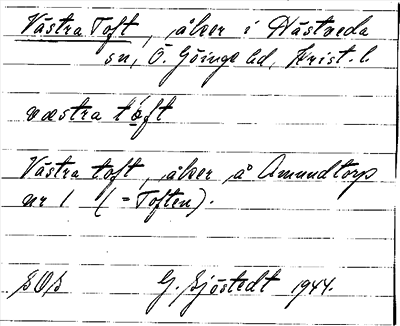 Västra Toft, åker i Hästveda
sn, Ö. Göinge hd, Krist. l
væstra tóft
Västra toft, åker å Amundtorp
nr 1 (= Toften).
SOS G. Sjöstedt 1944.